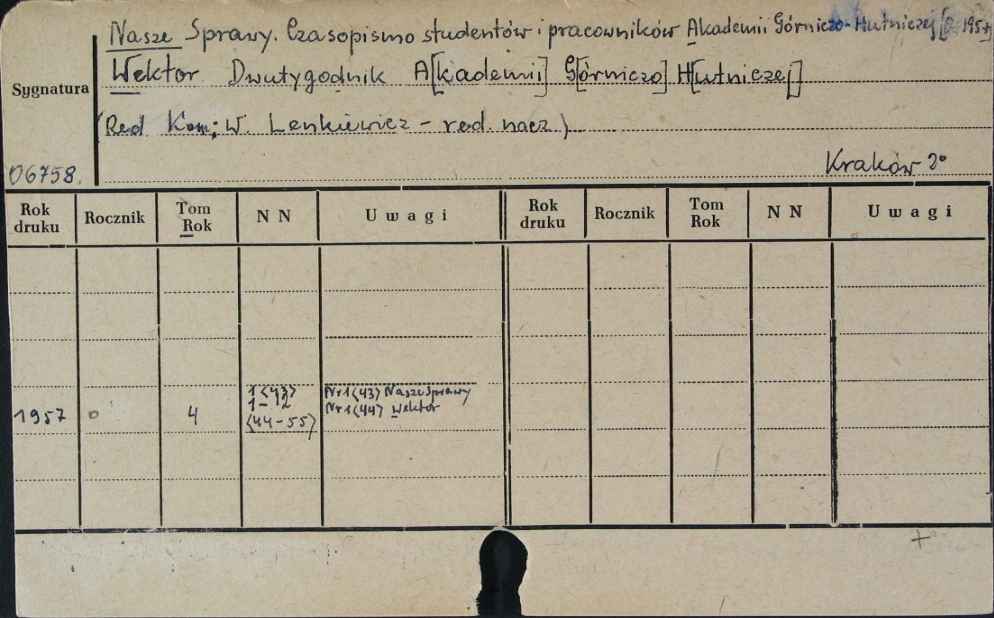 Nasze Sprawy. Czasopismo studentów i pracowników Akademii Górniczo-Hutniczej
Wektor Dwutygodnik A[kademii] G[órniczo] H[utniczej]
Sygnatura
(Red Kom: W. Lenkiewicz - red. nacz.)
06758.
Kraków 2°
Rok druku Rocznik Tom Rok NN Uwagi Rok druku Rocznik Tom Rok NN Uwagi
1<43> Nr 1<43> Nasze Sprawy
1957 o 4 1-12 Nr 1<44> Wektor
<44-55>
+